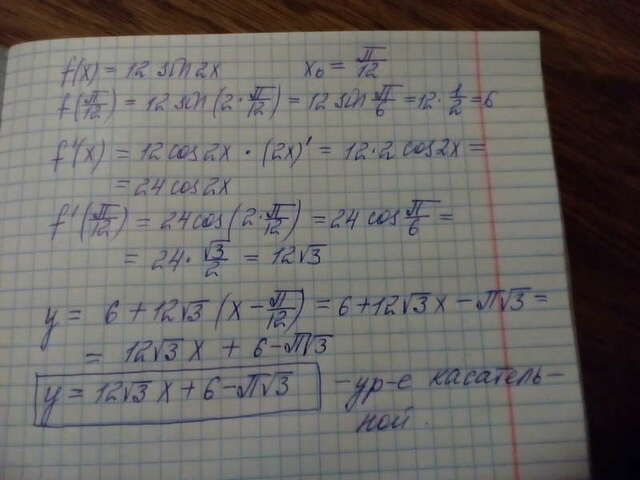 f(x) = 12 sin 2x x₀ = π/12
f(π/12) = 12 sin(2·π/12) = 12 sin π/6 = 12·1/2 = 6
f'(x) = 12 cos 2x · (2x)' = 12·2 cos 2x =
= 24 cos 2x
f'(π/12) = 24 cos(2·π/12) = 24 cos π/6 =
= 24·√3/2 = 12√3
y = 6 + 12√3 (x − π/12) = 6 + 12√3 x − π√3 =
= 12√3 x + 6 − π√3
y = 12√3 x + 6 − π√3 – ур-е касатель-
ной.